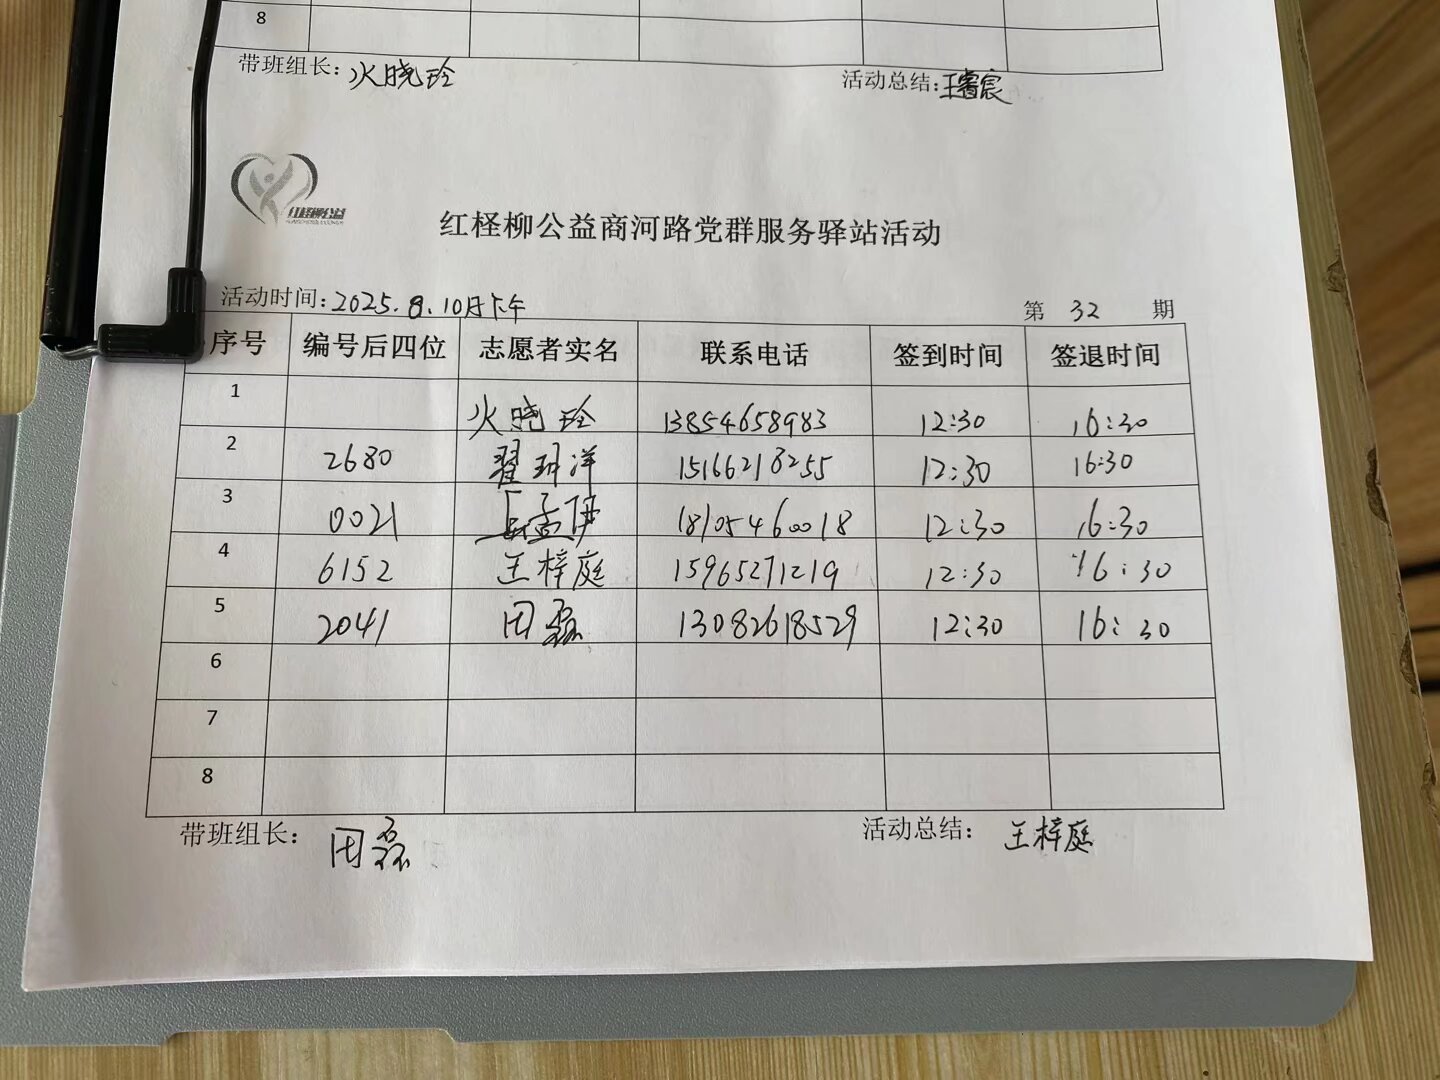 8
带班组长：火晓玲 活动总结：王睿宸
红柽柳公益
红柽柳公益商河路党群服务驿站活动
活动时间：2025.8.10日下午 第 32 期
序号 编号后四位 志愿者实名 联系电话 签到时间 签退时间
1 火晓玲 13854658983 12:30 16:30
2 2680 翟 洋 15166218255 12:30 16:30
3 0021 孟伊 18105460018 12:30 16:30
4 6152 王梓庭 15965271219 12:30 16:30
5 2041 田磊 13082618529 12:30 16:30
6
7
8
带班组长： 田磊 活动总结： 王梓庭